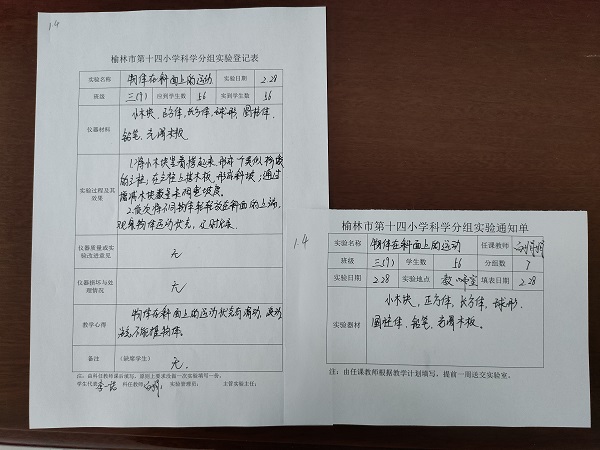 1.4
榆林市第十四小学科学分组实验登记表
实验名称 物体在斜面上的运动 实验日期 2.28
班级 三(7) 应到学生数 56 实到学生数 56
仪器材料 小木块、正方体、长方体、球形、圆柱体、
铅笔、光滑木板.
实验过程及其效果
1.将小木块垒着搭起来,形成
的立柱;在立柱上搭木板,形成斜坡;通过
木块数量来调整坡度。
2.依次将不同物体轻轻放在斜面的上端,
观察物体运动状况,及时记录.
仪器质量或实验改进意见 无
仪器损坏与处理情况 无
教学心得 物体在斜面上的运动状况有滑动、滚动
备注 (缺席学生) 无.
注:由科任教师课后填写,原则上要求没做一次实验填写一份。
学生代表: 科任教师: 实验管理员: 主管实验主任:
1.4
榆林市第十四小学科学分组实验通知单
实验名称 物体在斜面上的运动 任课教师
班级 三(7) 学生数 56 分组数 7
实验日期 2.28 实验地点 教室 填表日期 2.28
实验器材 小木块,正方体,长方体,球形,
圆柱体,铅笔,光滑木板。
注:由任课教师根据教学计划填写,提前一周送交实验室。